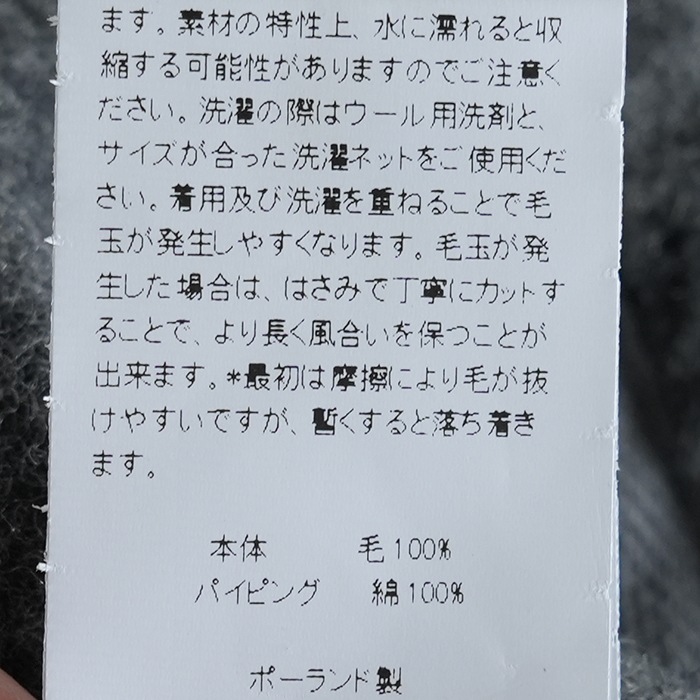 ます。素材の特性上、水に濡れると収
縮する可能性がありますのでご注意く
ださい。洗濯の際はウール用洗剤と、
サイズが合った洗濯ネットをご使用くだ
さい。着用及び洗濯を重ねることで毛
玉が発生しやすくなります。毛玉が発
生した場合は、はさみで丁寧にカットす
ることで、より長く風合いを保つことが
出来ます。*最初は摩擦により毛が抜
けやすいですが、暫くすると落ち着き
ます。
本体 毛100%
パイピング 綿100%
ポーランド製